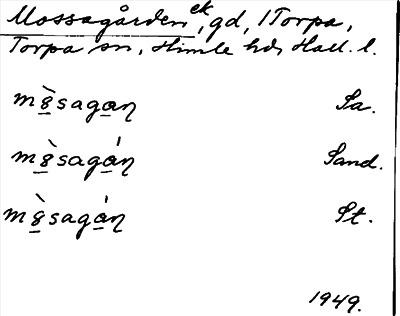 Mossagården ek, gd, 1 Torpa,
Torpa sn, Himle hd, Hall. l.
mòsagaɳ Sa.
mòsagáɳ Sand.
mòsagáɳ St.
1949.